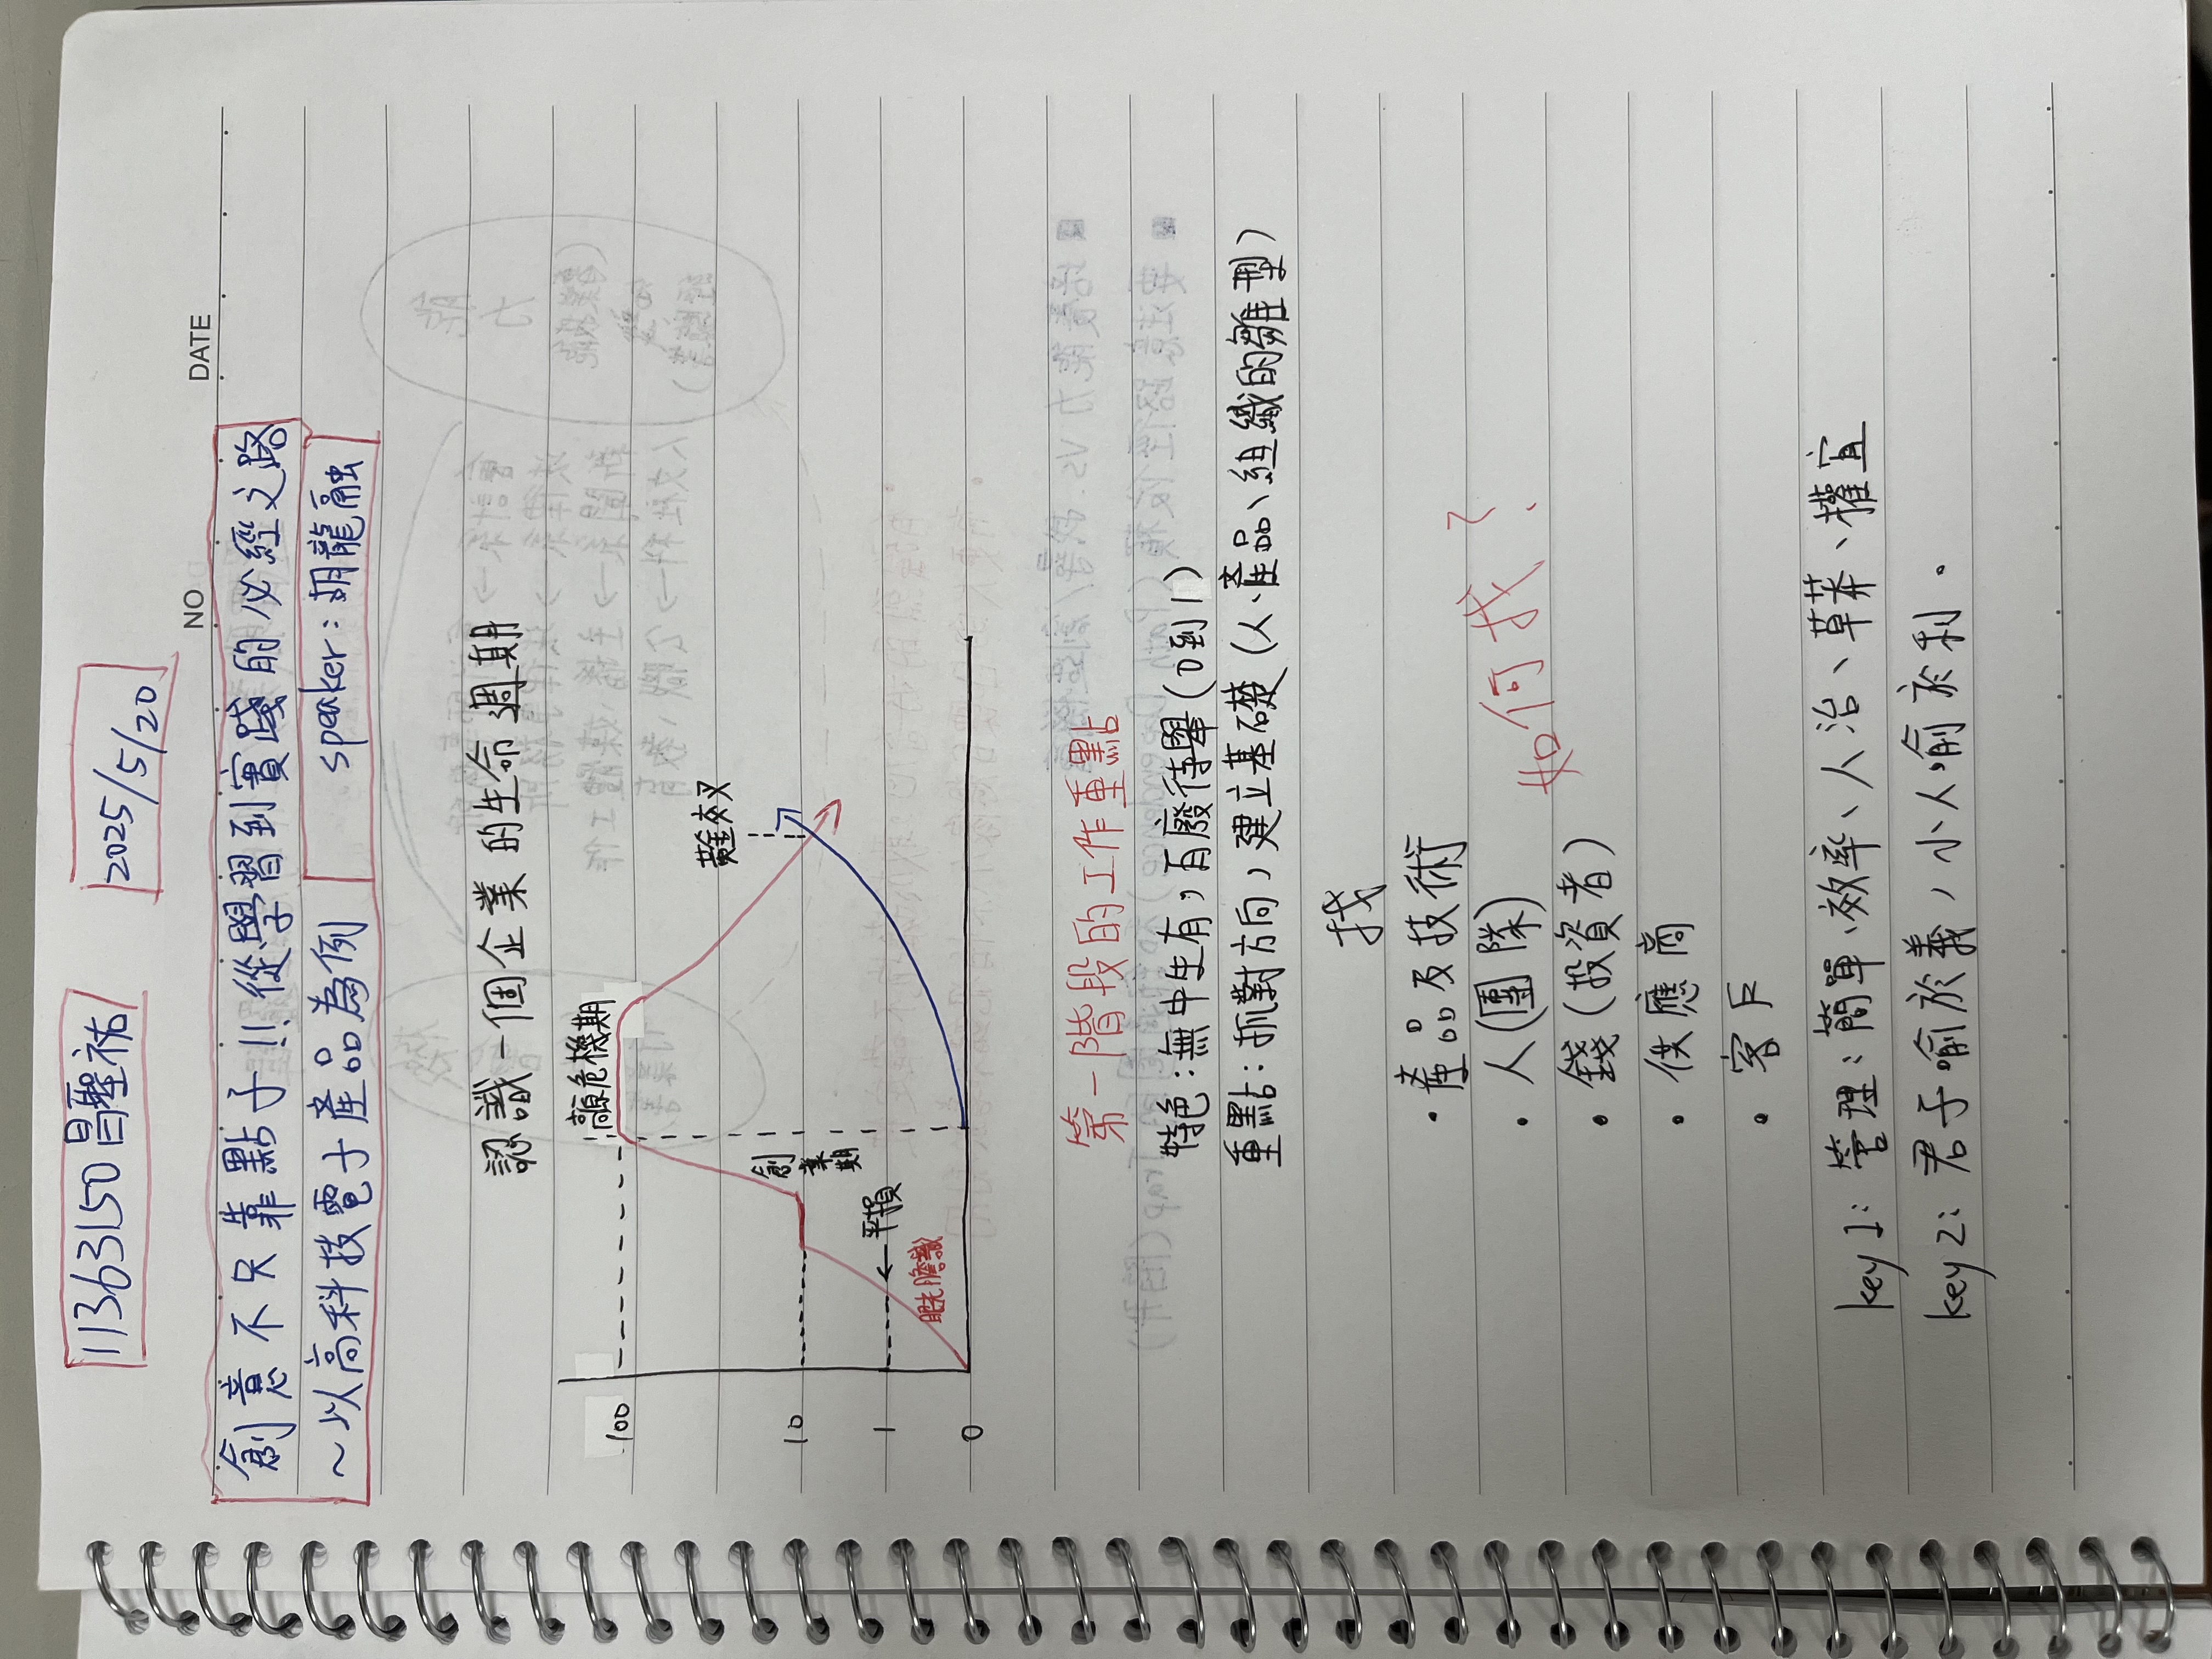 11363150 昌聖祐
2025/5/20
NO
DATE
創意不只靠點子!!從學習到實踐的必經之路
~以高科技電子產品為例
speaker:胡龍融
認識一個企業的生命週期
100
高原危機期
黃金交叉
10
創業期
1
←平損
眼光膽識
0
第一階段的工作重點
特色:無中生有,百廢待舉(0到1)
重點:抓對方向,建立基礎(人、產品、組織的雛型)
找
·產品及技術
·人(團隊)
如何找?
·錢(投資者)
·供應商
·客戶
key1:管理:簡單、效率、人治、草莽、權宜
key2:君子喻於義,小人喻於利。